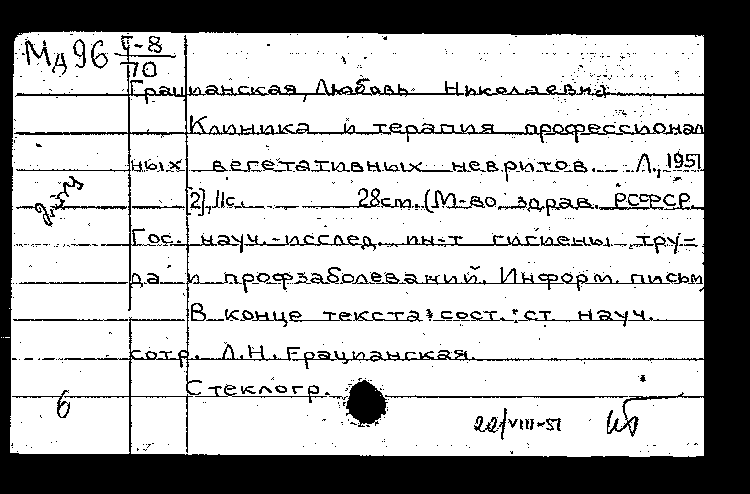 Мд96 V-8
70
Грацианская, Любовь Николаевна
Клиника и терапия профессионал
ных вегетативных невритов. Л., 1951
[2], 11с. 28см. (М-во здрав. РСФСР.
Гос. науч.-исслед. ин-т гигиены тру=
да и профзаболеваний. Информ. письм
В конце текста: сост.: ст. науч.
сотр. Л.Н. Грацианская.
Стеклогр.
6
22/VIII-51